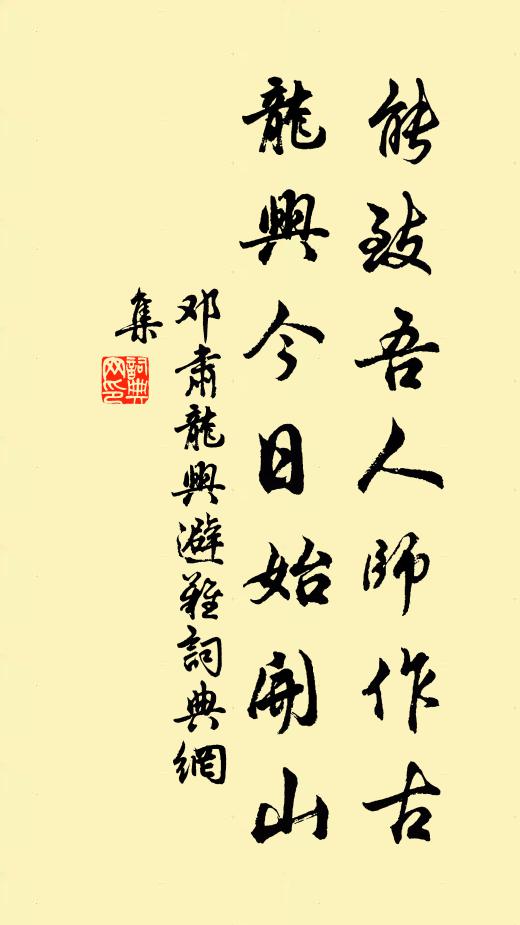 能致吾人師作古
龍興今日始開山
邓肅龍興避難詞典網
集
詞典網印